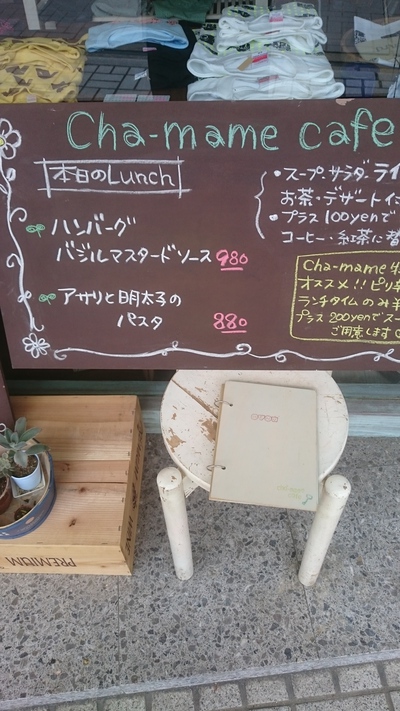 Cha-mame cafe
本日のLunch
ハンバーグ
バジルマスタードソース 980
アサリと明太子の
パスタ 880
•スープ・サラダ・ライ
お茶・デザート
•プラス100yenで
コーヒー・紅茶に
Cha-mame
オススメ!! ピリ
ランチタイムのみ
プラス200yenでスー
ご用意します
PREMIUM